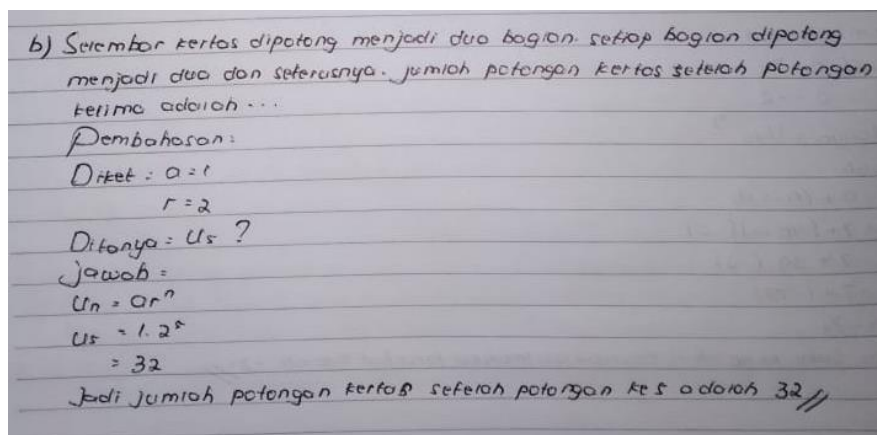 b) Selembar kertas dipotong menjadi dua bagian. setiap bagian dipotong
menjadi dua dan seterusnya. jumlah potongan kertas setelah potongan
kelima adalah ...
Pembahasan:
Diket : a = 1
r = 2
Ditanya = U₅ ?
jawab =
Un = arⁿ
U₅ = 1. 2⁵
= 32
Jadi jumlah potongan kertas setelah potongan ke 5 adalah 32 //